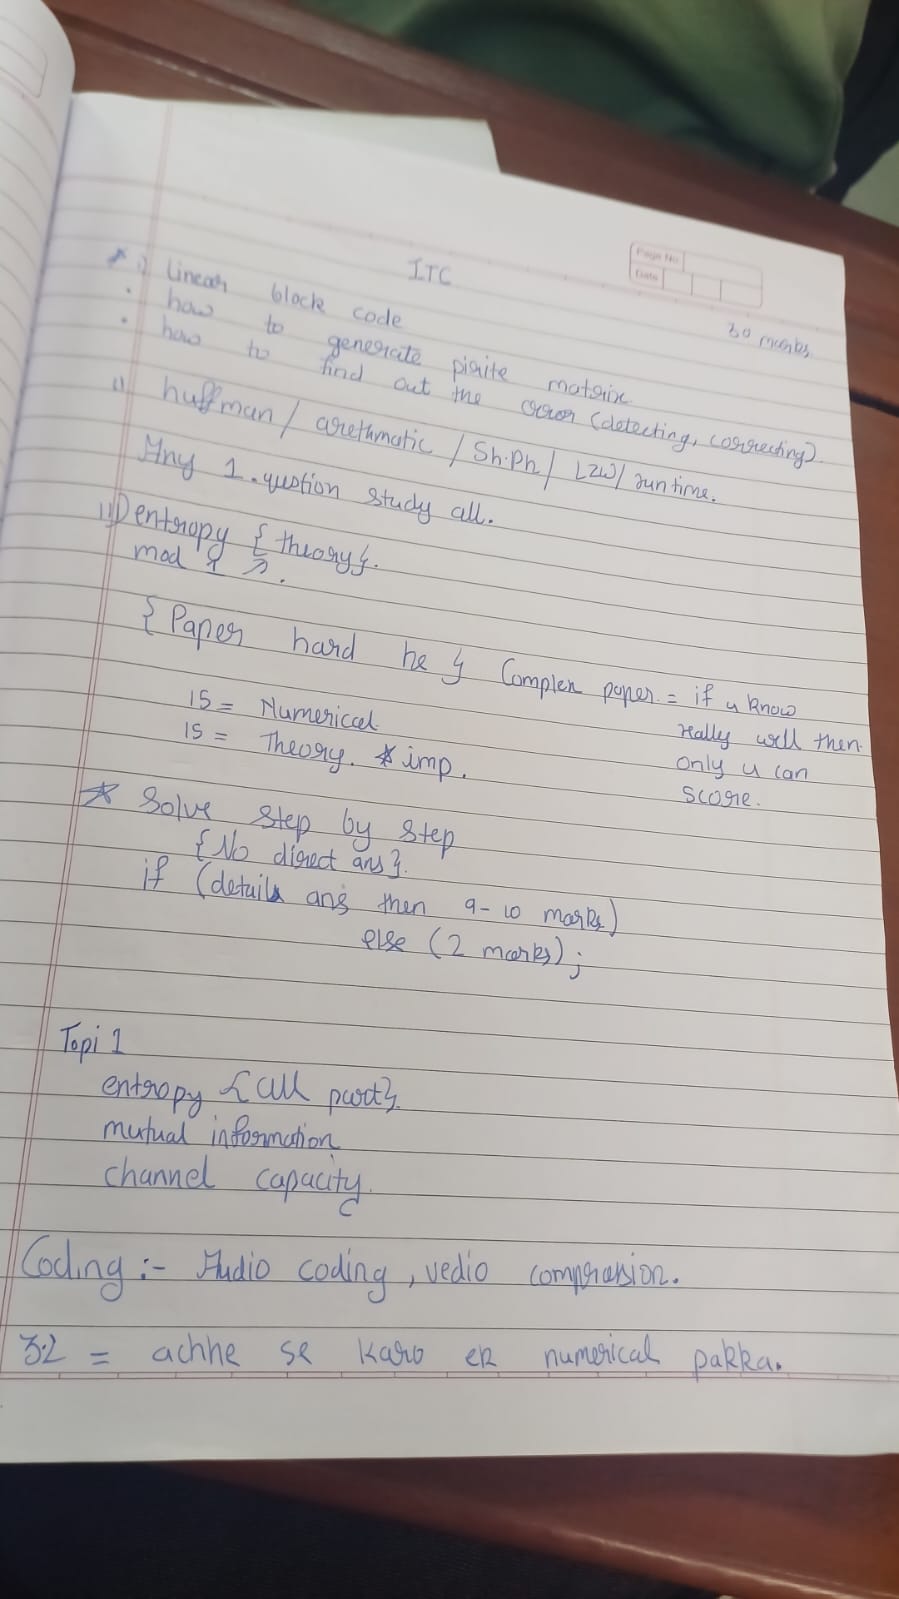 ITC
Page No
Date
30 marks
* i) Linear block code
• how to generate pirite matrix
• how to find out the error (detecting, correcting)
ii) huffman / arethmatic / Sh.Ph / LZW / run time.
Any 1 . qustion study all.
iii) entropy { theory }.
mod
{ Paper hard he } Complex paper = if u know
really well then
only u can
score.
15 = Numerical
15 = Theory. * imp.
* Solve step by step
{ No direct ans }.
if (details ans then 9-10 marks)
else (2 marks);
Topi 1
entropy { all part }.
mutual information
channel capacity.
Coding :- Audio coding, vedio compression.
3.2 = achhe se karo ek numerical pakka.